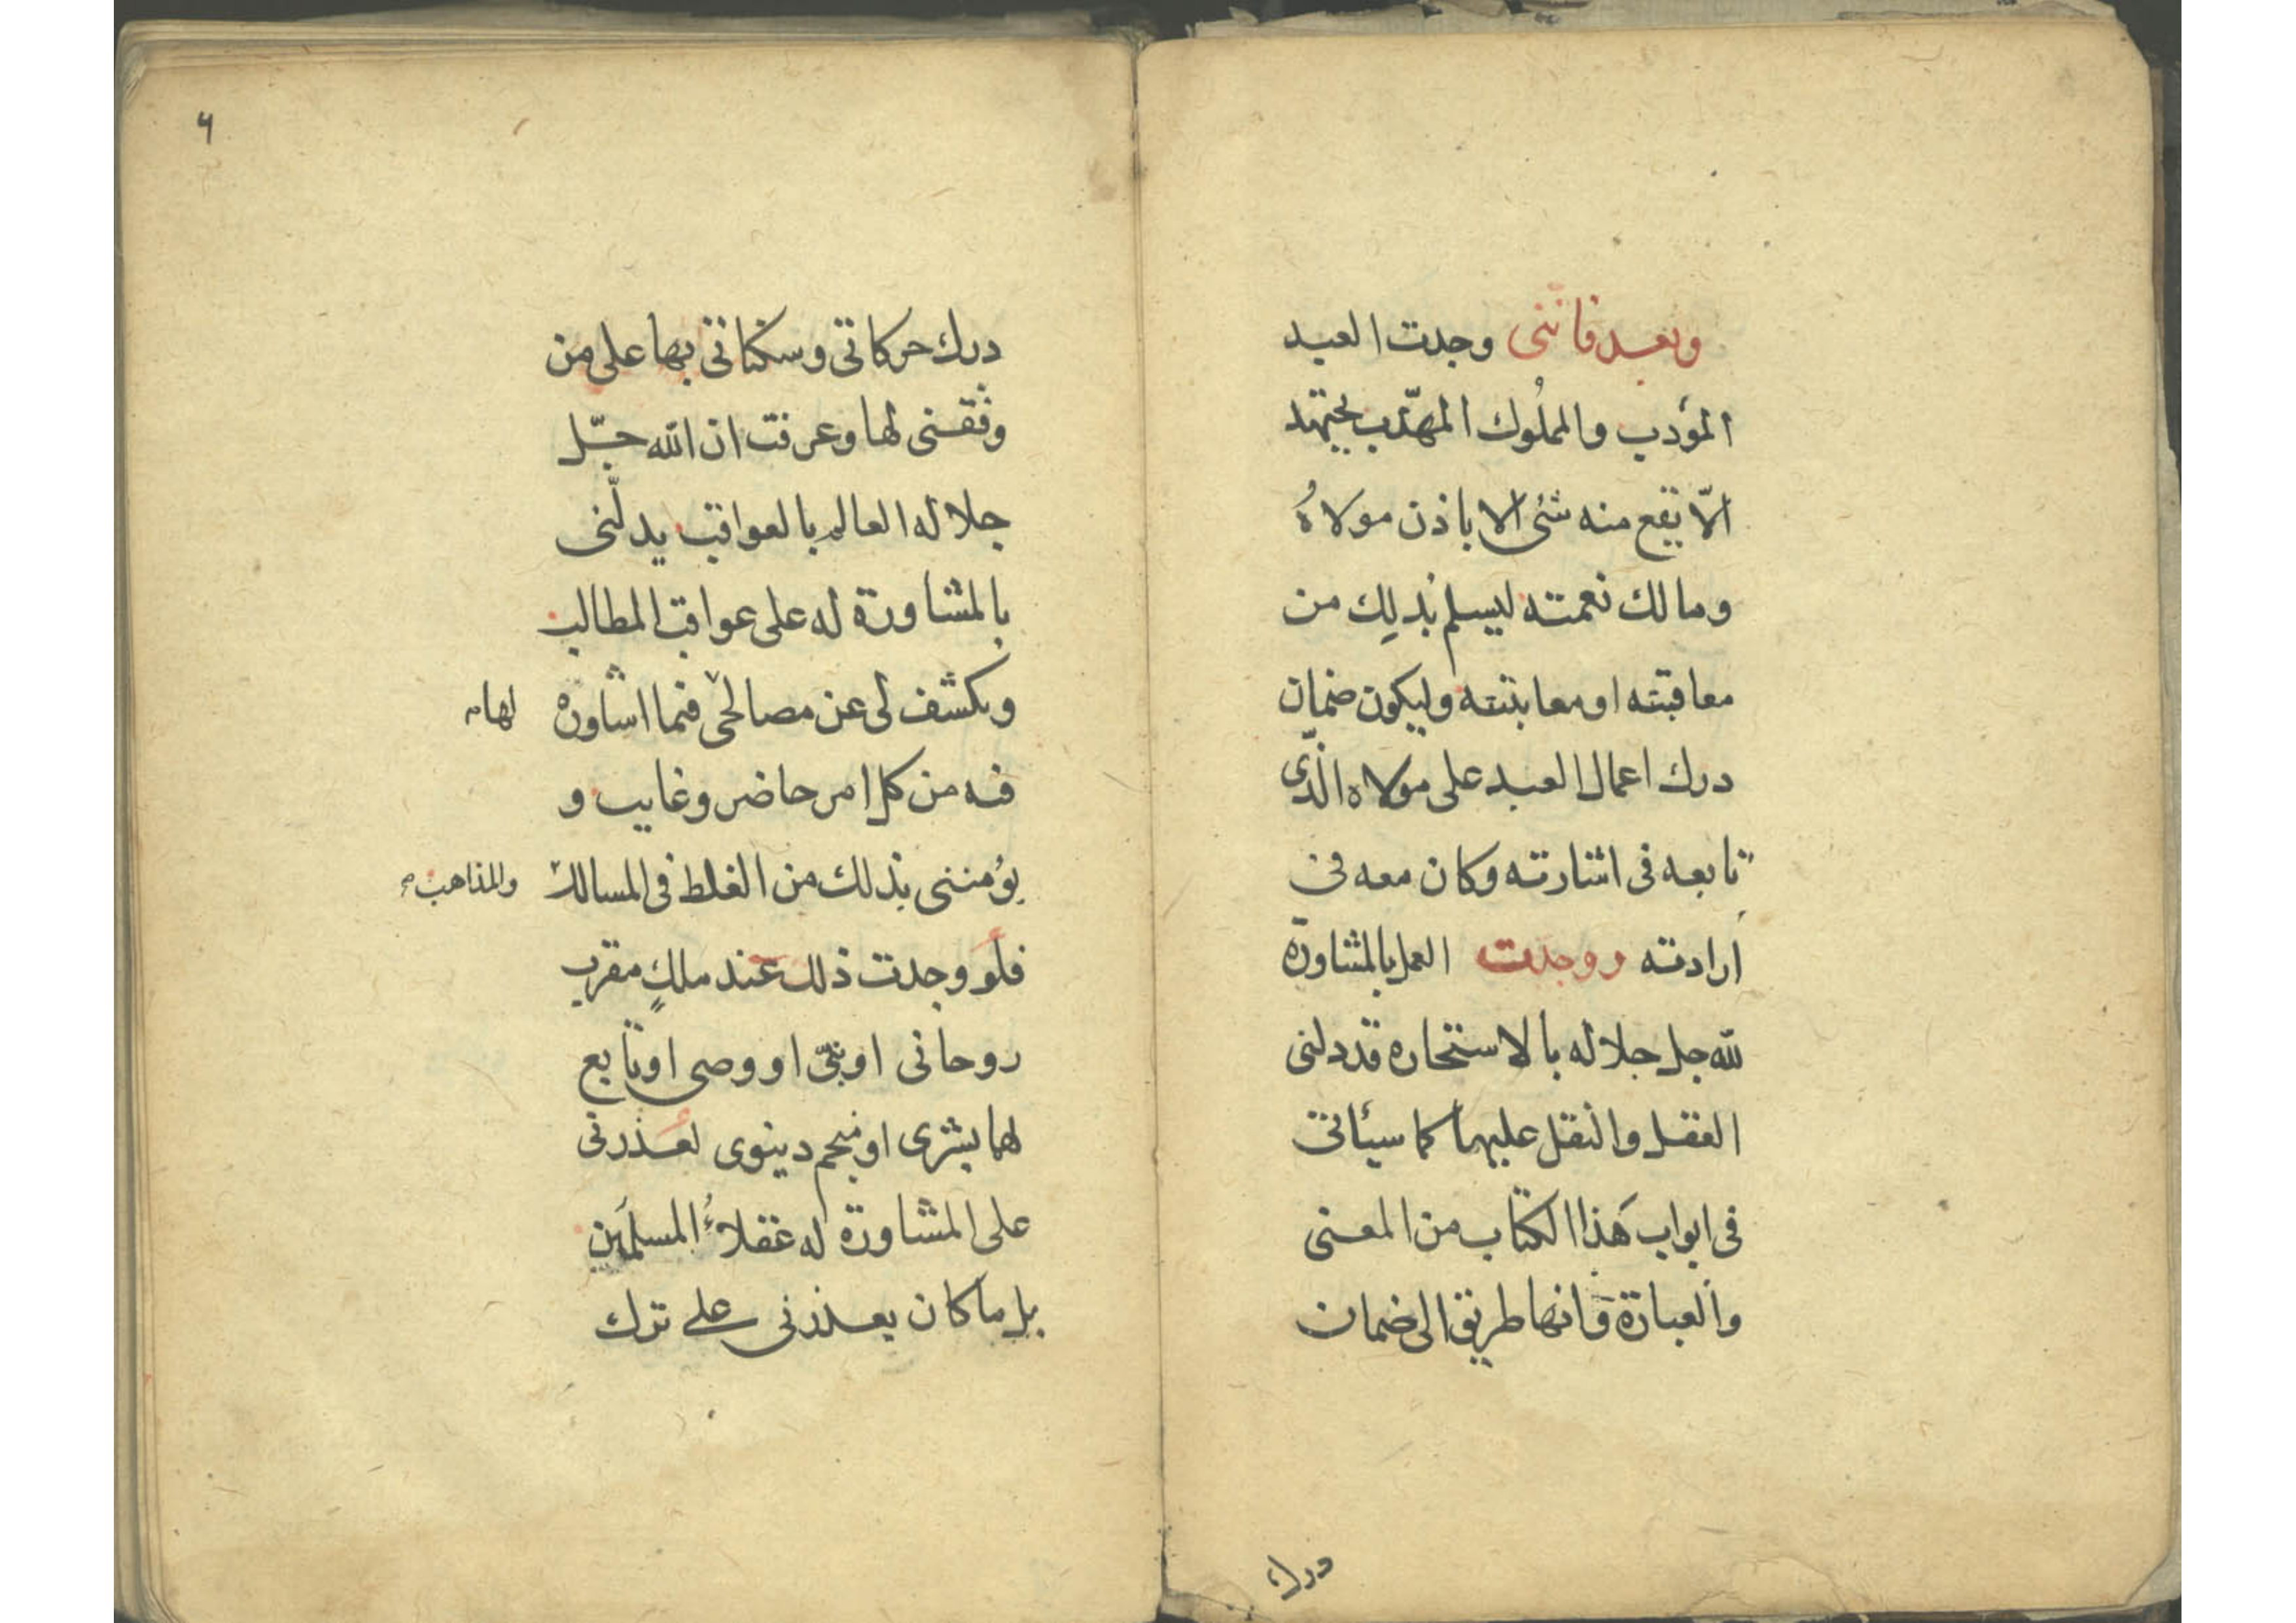 وبعد فاننى وجدت العبد
المؤدب والمملوك المهذّب يجتهد
الّا يقع منه شئ الا باذن مولاهُ
ومالك نعمته ليسلم بذلِك من
معاقبته او معاتبته وليكون ضمان
درك اعمال العبد على مولاه الّذى
تابعه فى اشارته وكان معه فى
ارادته ووجدت العمل بالمشاورة
لله جل جلاله بالاستخاره قد دلنى
العقل والنقل عليهما كما سيئاتى
فى ابواب هَذا الكتاب من المعنى
والعبارة وَانها طريق الى ضمان
درك
٦
درك حركاتى وسكناتى بها على من
وفّقنى لها وعرفت ان الله جّل
جلاله العالم بالعواقب يدلّنى
بالمشاورة له على عواقب المطالب
ويكشف لى عن مصالحى فيما اشاوره لها م
فيه من كل امر حاضر وغايب و
يوُمننى بذلك من الغلط فى المسالك والمذاهب م
فلو وجدت ذلك عند ملكٍ مقرب
روحانى او نبىّ او وصى او تابع
لهما بشرى او منجم دينوى لعذرنى
على المشاورة له عقلاءُ المسلمَين
بل ما كان يعذرنى على ترك